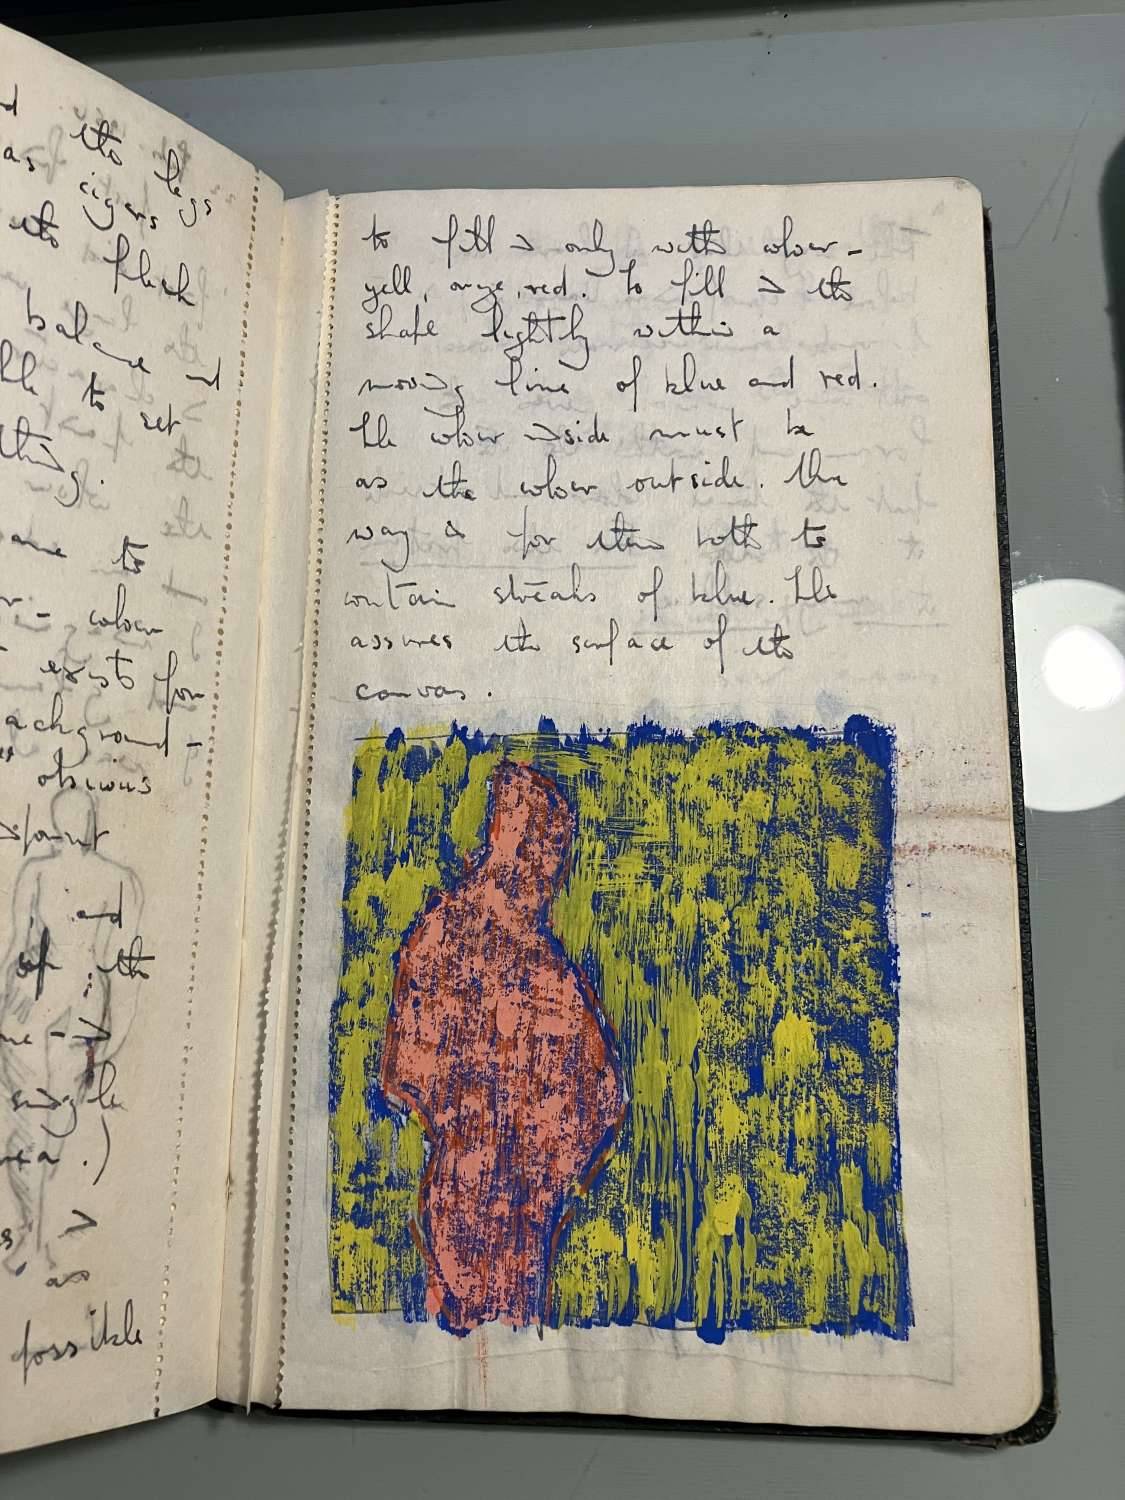 to legs
as cigars
its flesh
balance and
to set
thing.
are to
colour
exists for
background -
obvious
and
the
single
as
possible
to fill in only with colour -
yell, orange, red. To fill in the
shape lightly within a
moving line of blue and red.
The colour inside must be
as the colour outside. The
way is for them both to
contain streaks of blue. The
assures the surface of the
canvas.